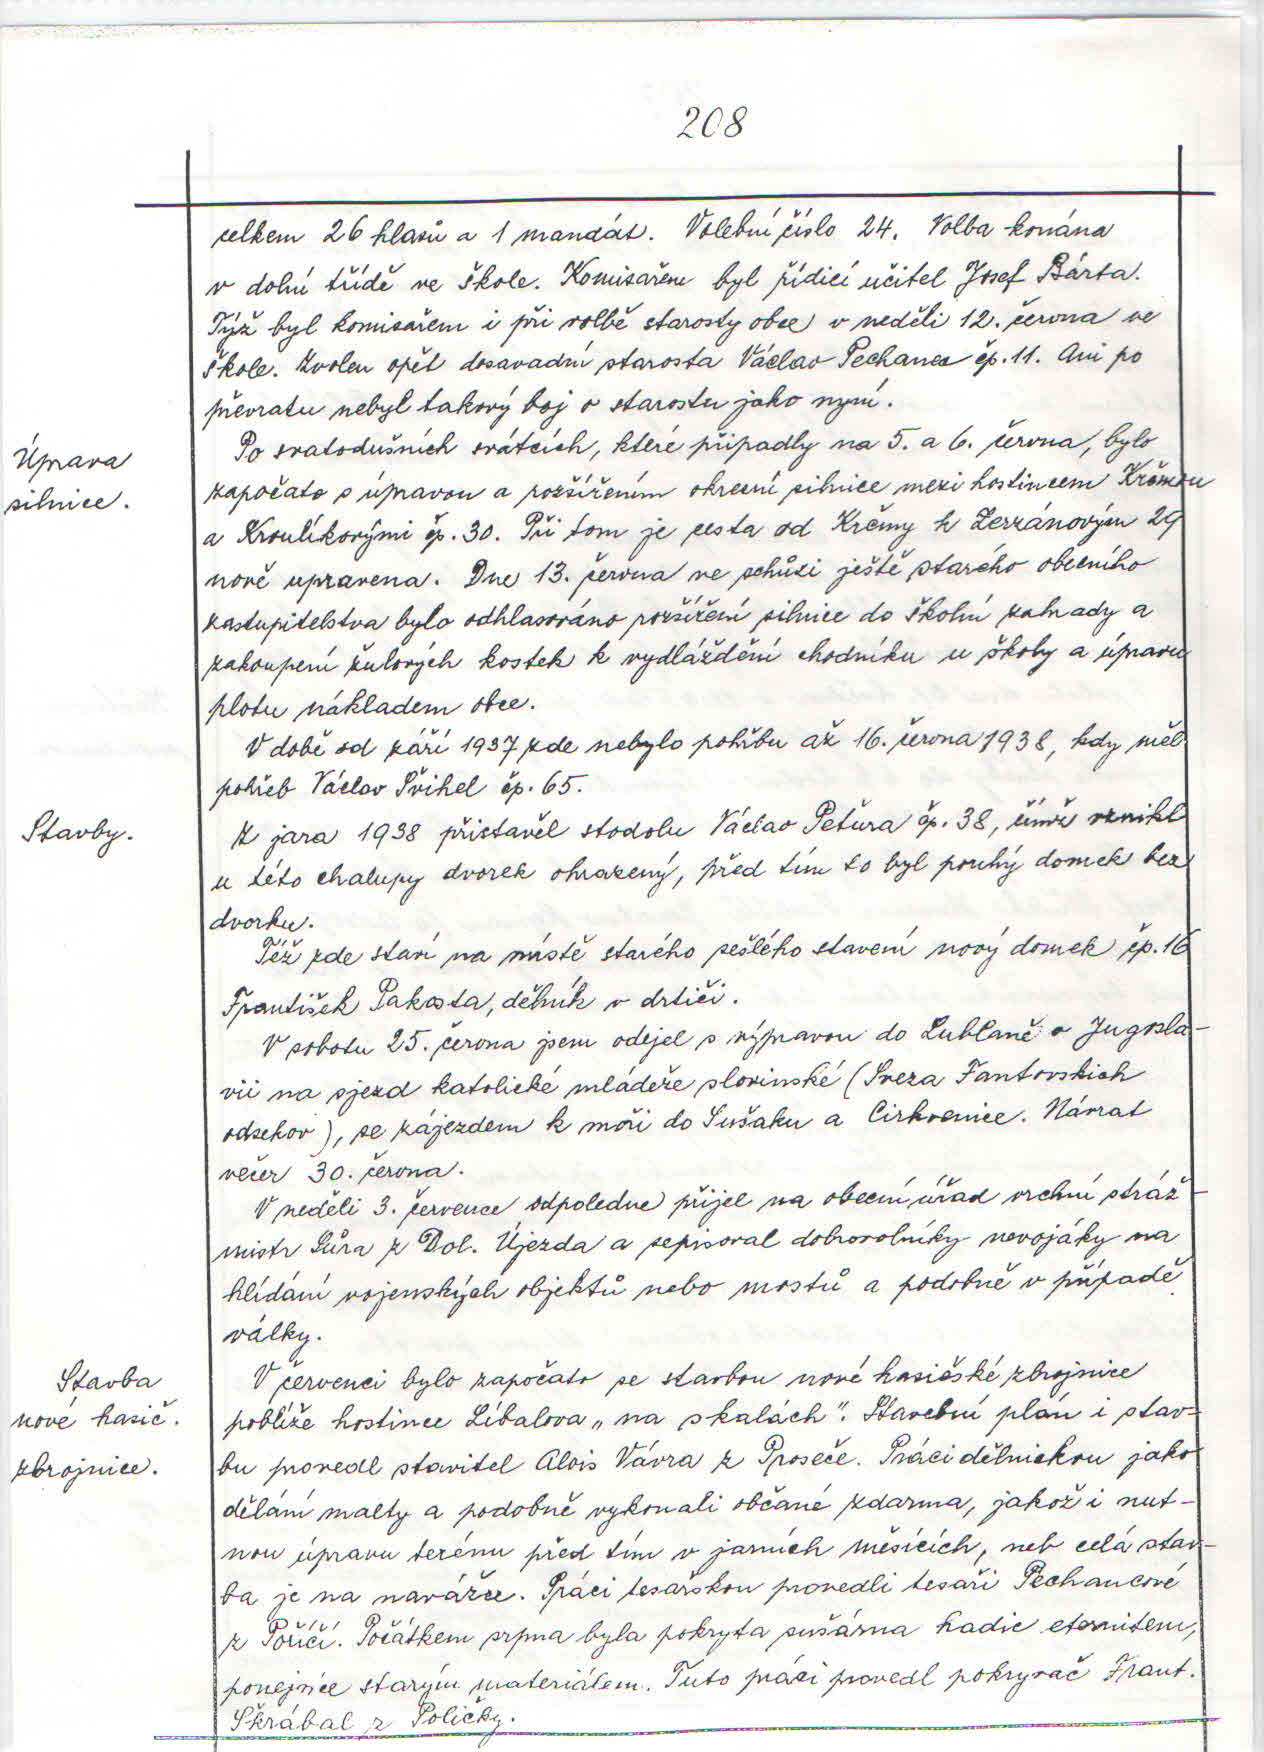 208
celkem 26 hlasů a 1 mandát. Volební číslo 24. Volba konána
v dolní třídě ve škole. Komisařem byl řídící učitel Josef Bárta.
Týž byl komisařem i při volbě starosty obce v neděli 12. června ve
škole. Zvolen opět dosavadní starosta Václav Pechanec čp. 11. Ani po
převratu nebyl takový boj o starostu jako nyní.
Úprava
silnice.
Po svatodušních svátcích, které připadly na 5. a 6. června, bylo
započato s úpravou a rozšířením okresní silnice mezi hostincem Krčmou
a Kroulíkovými čp. 30. Při tom je cesta od Krčmy k Zerzánovým 29
nově upravena. Dne 13. června ve schůzi ještě starého obecního
zastupitelstva bylo odhlasováno rozšíření silnice do školní zahrady a
zakoupení žulových kostek k vydláždění chodníku u školy a úpravu
plotu nákladem obce.
V době od září 1937 zde nebylo pohřbu až 16. června 1938, kdy měl
pohřeb Václav Svihel čp. 65.
Stavby.
Z jara 1938 přistavěl stodolu Václav Petura čp. 38, čímž vznikl
u této chalupy dvorek ohrazený, před tím to byl pouhý domek bez
dvorku.
Též zde staví na místě starého sešlého stavení nový domek čp. 16
František Pakosta, dělník v drtiči.
V sobotu 25. června jsem odejel s výpravou do Lublaně v Jugosla-
vii na sjezd katolické mládeže slovinské (Sveza Fantovskich
odsekov), se zájezdem k moři do Sušaku a Cirkvenice. Návrat
večer 30. června.
V neděli 3. července odpoledne přijel na obecní úřad vrchní stráž-
mistr Sůra z Dol. Újezda a sepisoval dobrovolníky nevojáky na
hlídání vojenských objektů nebo mostů a podobně v případě
války.
Stavba
nové hasič.
zbrojnice.
V červenci bylo započato se stavbou nové hasičské zbrojnice
poblíže hostince Líbalova „na skalách“. Stavební plán i stav-
bu provedl stavitel Alois Vávra z Proseče. Práci dělnickou jako
dělání malty a podobně vykonali občané zdarma, jakož i nut-
nou úpravu terénu před tím v jarních měsících, neb celá stav-
ba je na navážce. Práci tesařskou provedli tesaři Pechancové
z Poříčí. Počátkem srpna byla pokryta sušárna hadic eternitem,
ponejvíce starým materiálem. Tuto práci provedl pokryvač Frant.
Škrábal z Poličky.